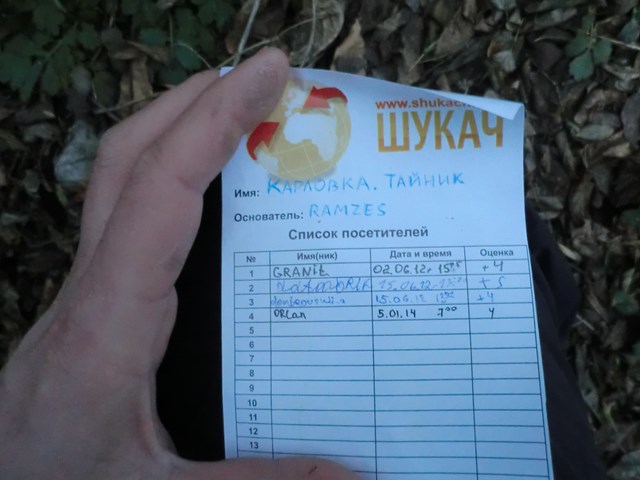 www.shukach
ШУКАЧ
Имя: КАРЛОВКА. ТАЙНИК
Основатель: RAMZES
Список посетителей
№ Имя(ник) Дата и время Оценка
1 GRANIt 02.06.12г +4
2 15.06.12 +5
3 15.06.12 +4
4 ORLan 5.01.14 7⁰⁰ 4
5
6
7
8
9
10
11
12
13